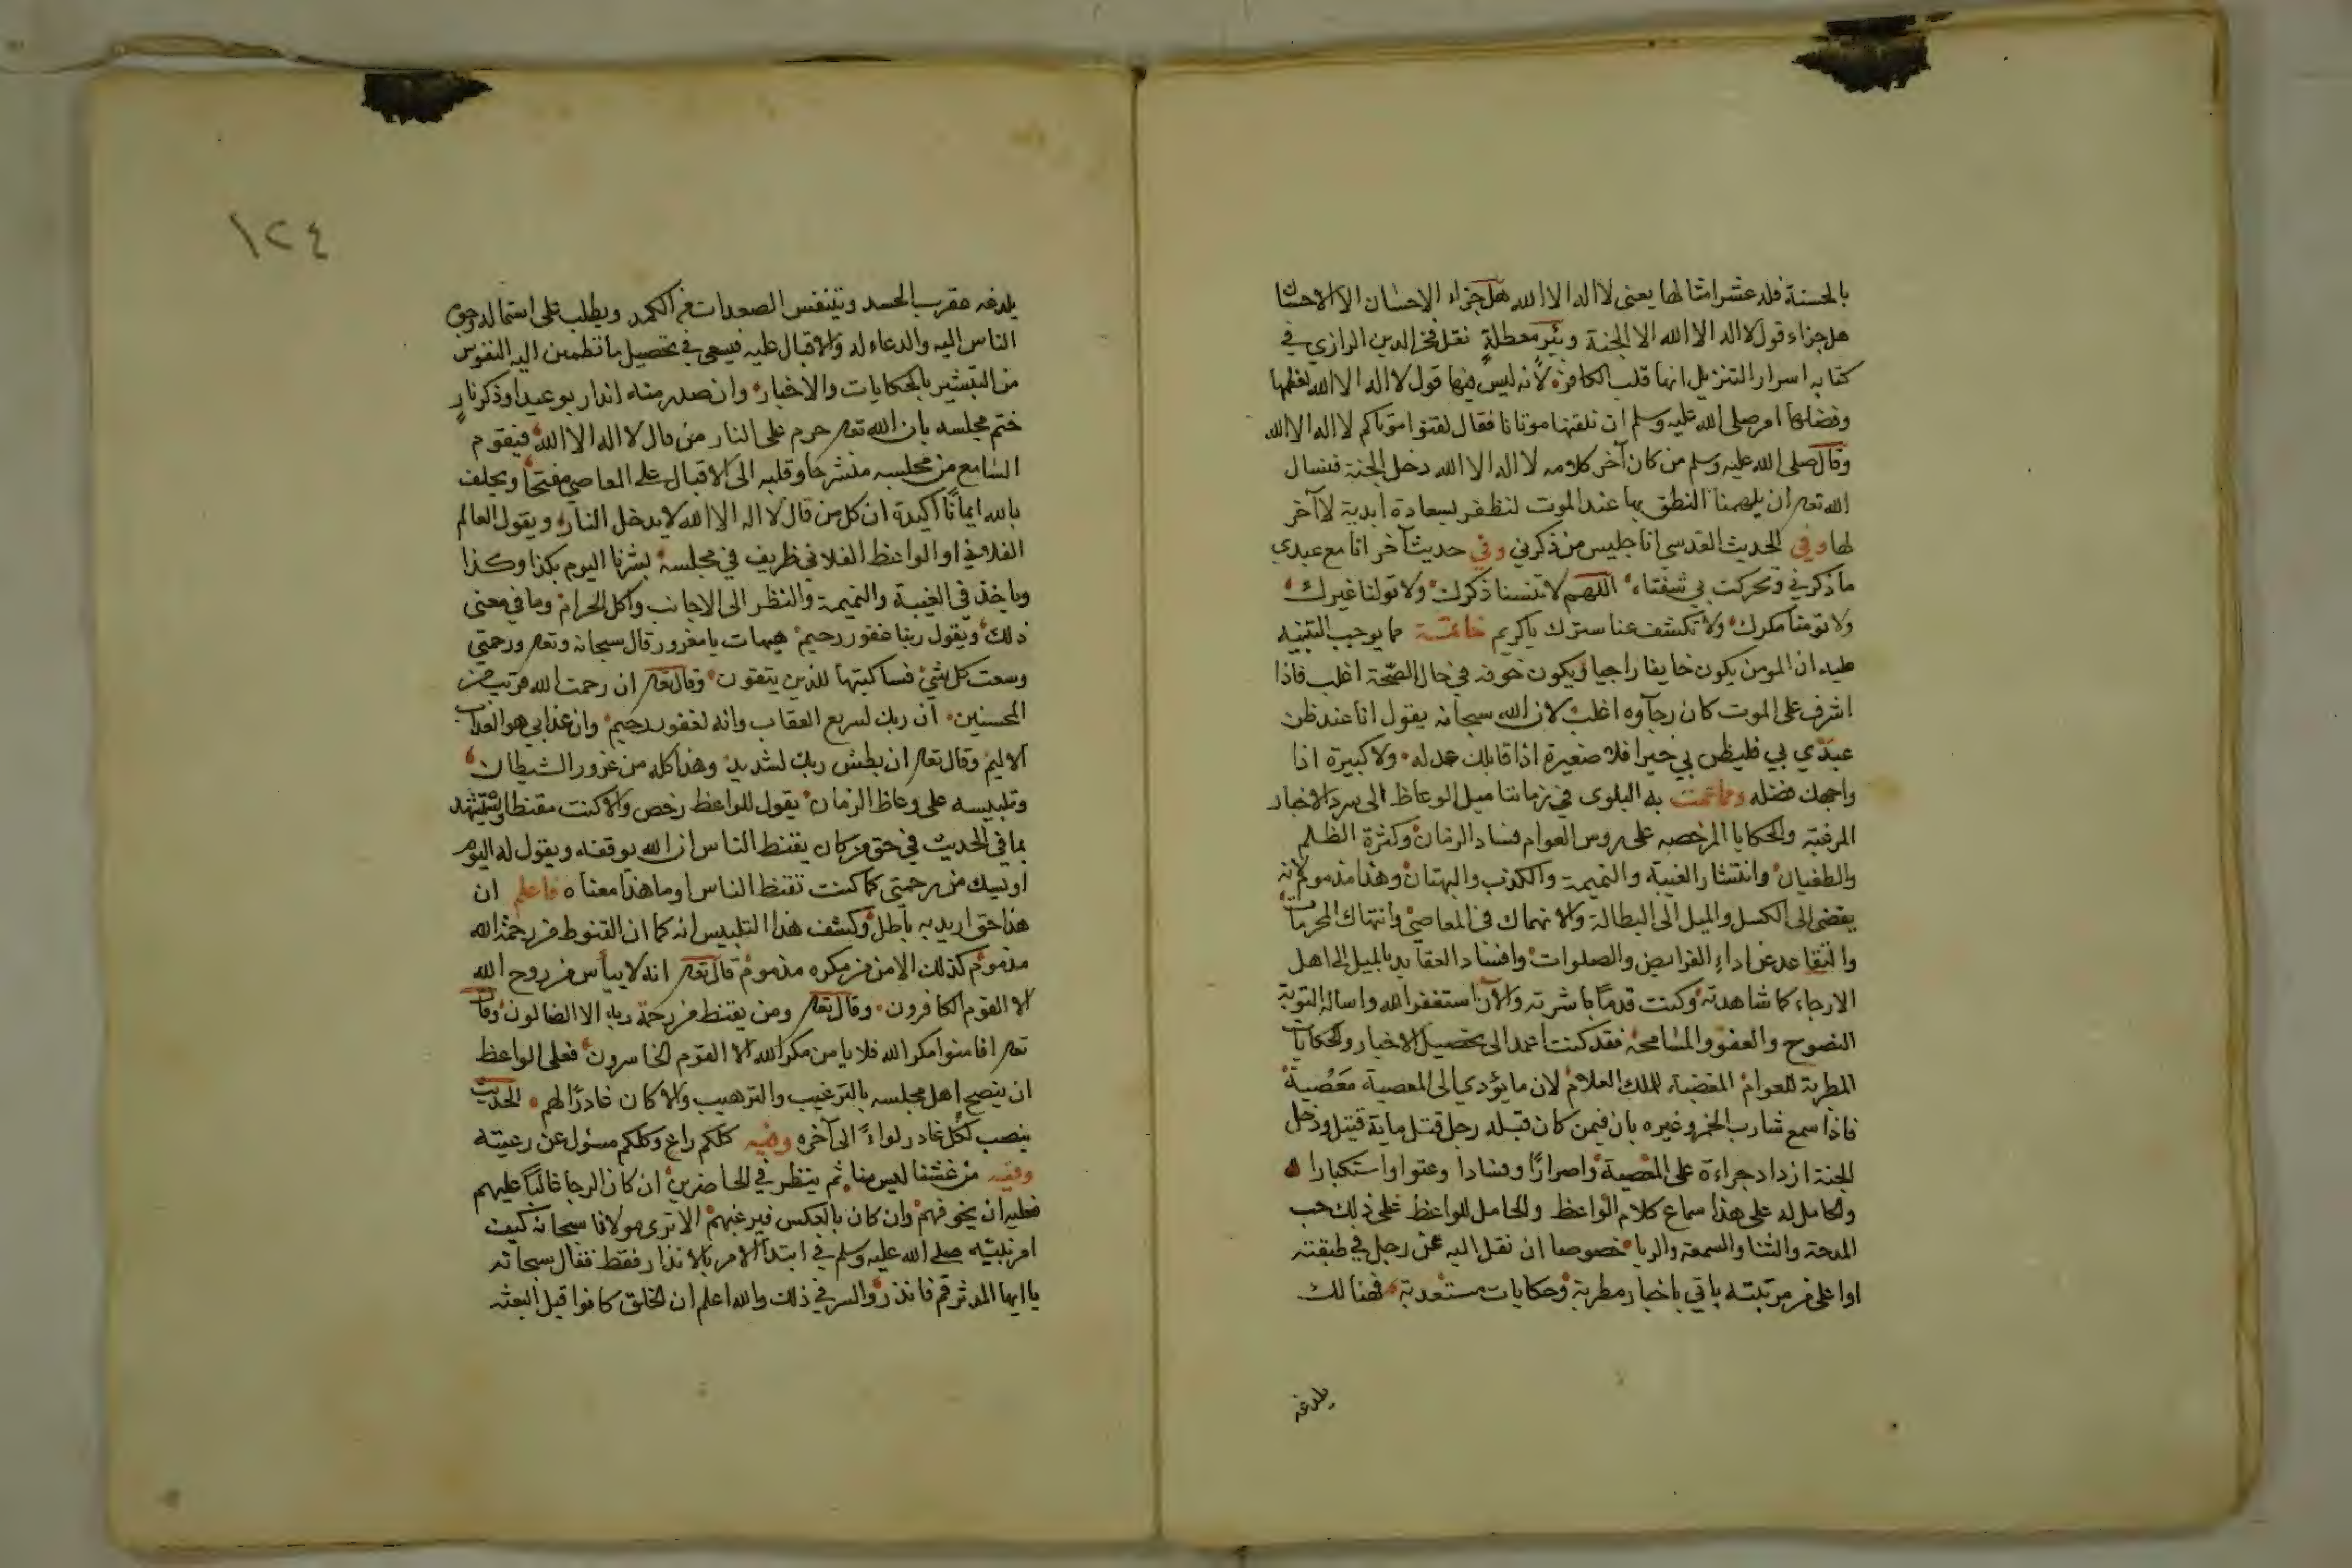 بالحسنة فله عشر امثالها يعنى لا اله الا الله هل جزاء الاحسان الا الاحسان
هل جزاء قول لا اله الا الله الا الجنة وبئر معطلة نقل فخر الدين الرازي في
كتابه اسرار التنزيل انها قلب الكافر لأنه ليس فيها قول لا اله الا الله لعظمها
وفضلها امر صلى الله عليه وسلم ان نلقنها موتانا فقال لقنوا موتاكم لا اله الا الله
وقال صلى الله عليه وسلم من كان آخر كلامه لا اله الا الله دخل الجنة فنسال
الله تعه ان يلهمنا النطق بها عند الموت لنظفر بسعادة ابدية لا آخر
لها وفي الحديث القدسي انا جليس من ذكرني وفي حديث آخر انا مع عبدي
ما ذكرني وتحركت بي شفتاه اللهم لا تنسنا ذكرك ولا تولنا غيرك
ولا تومنا مكرك ولا تكشف عنا سترك يا كريم خاتمة مما يوجب التنبيه
عليه ان المومن يكون خايفا راجيا ويكون خوفه في حال الصحة اغلب فاذا
اشرف على الموت كان رجآوه اغلب لان الله سبحانه يقول انا عند ظن
عبدي بي فليظن بي خيرا فلا صغيرة اذا قابلك عدله ولا كبيرة اذا
واجهك فضله ومما عمت به البلوى في زماننا ميل الوعاظ الى سرد الاخبار
المرغبة والحكايا المرخصه على روس العوام فساد الزمان وكثرة الظلم
والطغيان وانتشار الغيبة والنميمة والكذب والبهتان وهذا مذموم لانه
يفضى الى الكسل والميل الى البطالة والانهماك في المعاصي وانتهاك المحرمات
والتقاعد عن اداء الفرايض والصلوات وافساد العقايد بالميل الى اهل
الارجاء كما شاهدته وكنت قدمًا باشرته والآن استغفر الله واساله التوبة
النصوح والعفو والمسامحة فقد كنت اعمد الى تحصيل الاخبار والحكايات
المطربة للعوام المغضبة للملك العلام لان ما يؤدي الى المعصية معصية
فاذا سمع شارب الخمر وغيره بان فيمن كان قبله رجل قتل ماية قتيل ودخل
الجنة ازداد جراءة على المعصية واصرارًا وفسادا وعتوا واستكبارا
والحامل له على هذا سماع كلام الواعظ والحامل للواعظ على ذلك حب
المدحة والثنا والسمعة والريا خصوصا ان نقل اليه عن رجل في طبقته
او اعلى من مرتبته ياتي باخبار مطربة وحكايات مستعذبة فهنالك
يلدغه
١٢٤
يلدغه عقرب الحسد ويتنفس الصعدات من الكمد ويطلب على استمالة وجوه
الناس اليه والدعاء له والاقبال عليه فيسعى في تحصيل ما تطمين اليه النفوس
من التبشير بالحكايات والاخبار وان صدر منه انذار بوعيد او ذكر نار
ختم مجلسه بان الله تعه حرم على النار من قال لا اله الا الله فيقوم
السامع من مجلسه منشرحا وقلبه الى الاقبال على المعاصي مفتحا ويحلف
بالله ايمانًا اكيدة ان كل من قال لا اله الا الله لا يدخل النار ويقول العالم
الفلاني او الواعظ الفلاني ظريف في مجلسه بشرنا اليوم بكذا وكذا
وياخذ في الغيبة والنميمة والنظر الى الاجانب واكل الحرام وما في معنى
ذلك ويقول ربنا غفور رحيم هيهات يا مغرور قال سبحانه وتعه ورحمتي
وسعت كل شئ فساكتبها للذين يتقون وقال تعه ان رحمت الله قريب من
المحسنين ان ربك لسريع العقاب وانه لغفور رحيم وان عذابي هو العذاب
الاليم وقال تعه ان بطش ربك لشديد وهذا كله من غرور الشيطان
وتلبيسه على وعاظ الزمان يقول للواعظ رخص والا كنت مقنطا ويستشهد
بما في الحديث في حق من كان يقنط الناس ان الله يوقفه ويقول له اليوم
اويسك من رحمتي كما كنت تقنط الناس او ما هذا معناه فاعلم ان
هذا حق اريد به باطل وكشف هذا التلبيس انه كما ان القنوط من رحمة الله
مذموم كذلك الامن من مكره مذموم قال تعه انه لا ييأس من روح الله
الا القوم الكافرون وقال تعه ومن يقنط من رحمة ربه الا الضالون وقال
تعه افامنوا مكر الله فلا يامن مكر الله الا القوم الخاسرون فعلى الواعظ
ان ينصح اهل مجلسه بالترغيب والترهيب والا كان غادرًا لهم الحديث
ينصب لكل غادر لواءً الى آخره وفيه كلكم راعٍ وكلكم مسئول عن رعيته
وفيه من غشنا ليس منا ثم ينظر في الحاضرين ان كان الرجا غالبًا عليهم
فعليه ان يخوفهم وان كان بالعكس فيرغبهم الا ترى مولانا سبحانه كيف
امر نبيه صلى الله عليه وسلم في ابتدآ الامر بالانذار فقط فقال سبحانه
يا ايها المدثر قم فانذر والسر في ذلك والله اعلم ان الخلق كانوا قبل البعثه